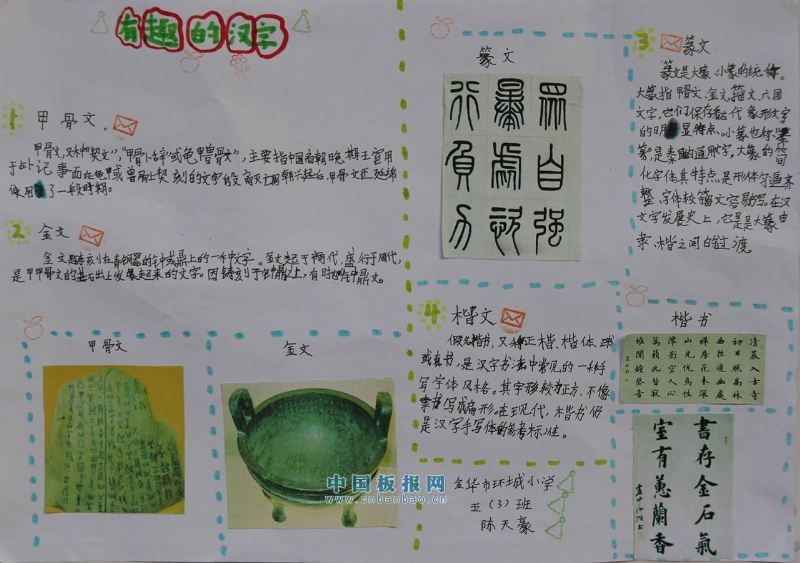 有趣的汉字
1 甲骨文。
甲骨文,又称"契文","甲骨卜辞"或龟甲兽骨文",主要指中国商朝晚期王室用
于占卜记事而在龟甲或兽骨上契刻的文字殷商灭亡周朝兴起后,甲骨文还延绵
使用了一段时期。
2 金文
金文是铸刻在青铜器的钟或鼎上的一种文字。金文起于商代,盛行于周代,
是甲骨文的基础上发展起来的文字。因铸刻于钟鼎上,有时也称钟鼎文。
甲骨文
金文
篆文
众自强
墨处认
行负力
3 篆文
篆文是大篆、小篆的统称。
大篆指甲骨文、金文、籀文、六国
文字,它们保存着古代象形文字
的明显特点。小篆也称"秦
篆,是秦国的通用字,大篆的简
化字体其特点是形体匀逼齐
整、字体较籀文容易写。在汉
文字发展史上,它是是大篆由
隶、楷之间的过渡。
4 楷文
楷书,又称正楷、楷体、
或真书,是汉字书法中常见的一种手
写字体风格。其字形较为正方,不像
隶书写成扁形。在现代,楷书仍
是汉字手写体的参考标准。
楷书
清晨入古寺
初日照高林
曲径通幽处
禅房花木深
山光悦鸟性
潭影空人心
万籁此皆寂
惟闻钟磬音
書存金石氣
室有蕙蘭香
金华市环城小学
五(3)班
陈天豪
中国板报网
www.cnbanbao.cn